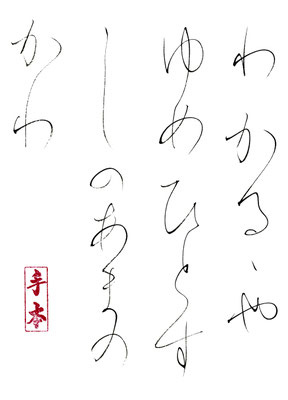 わかるゝや
ゆめひとす
しのあまの
かわ
手本